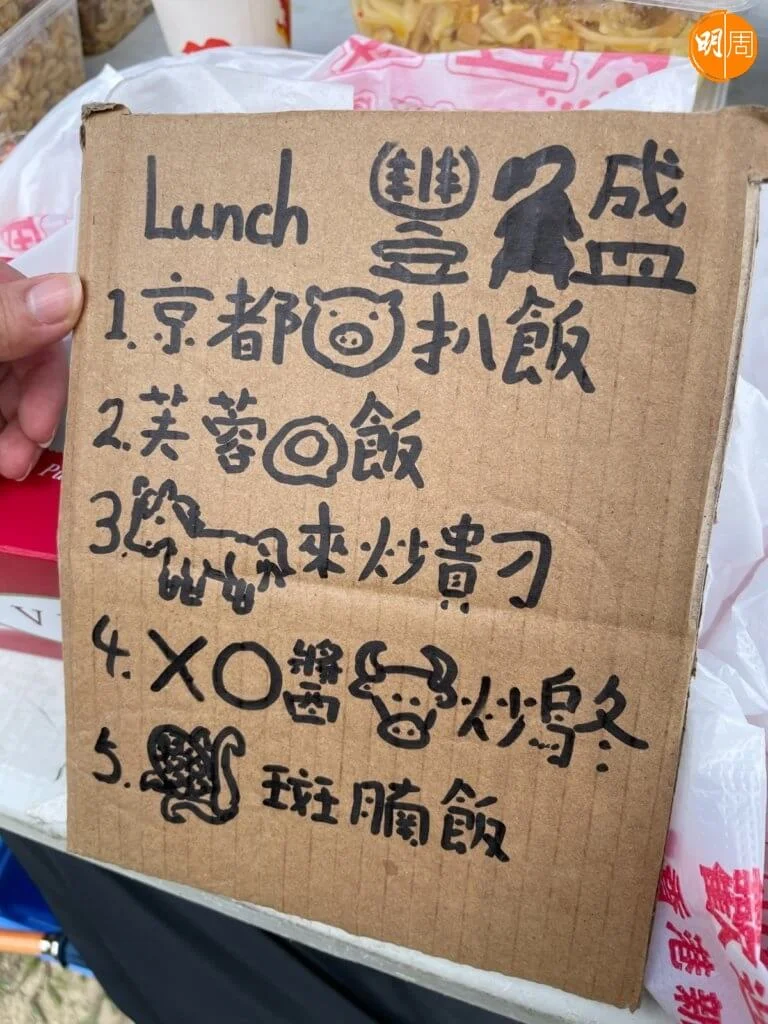 明周
Lunch 豐盛
1. 京都扒飯
2. 芙蓉飯
3. 來炒貴刁
4. XO醬炒烏冬
5. 斑腩飯
歡迎
香港新